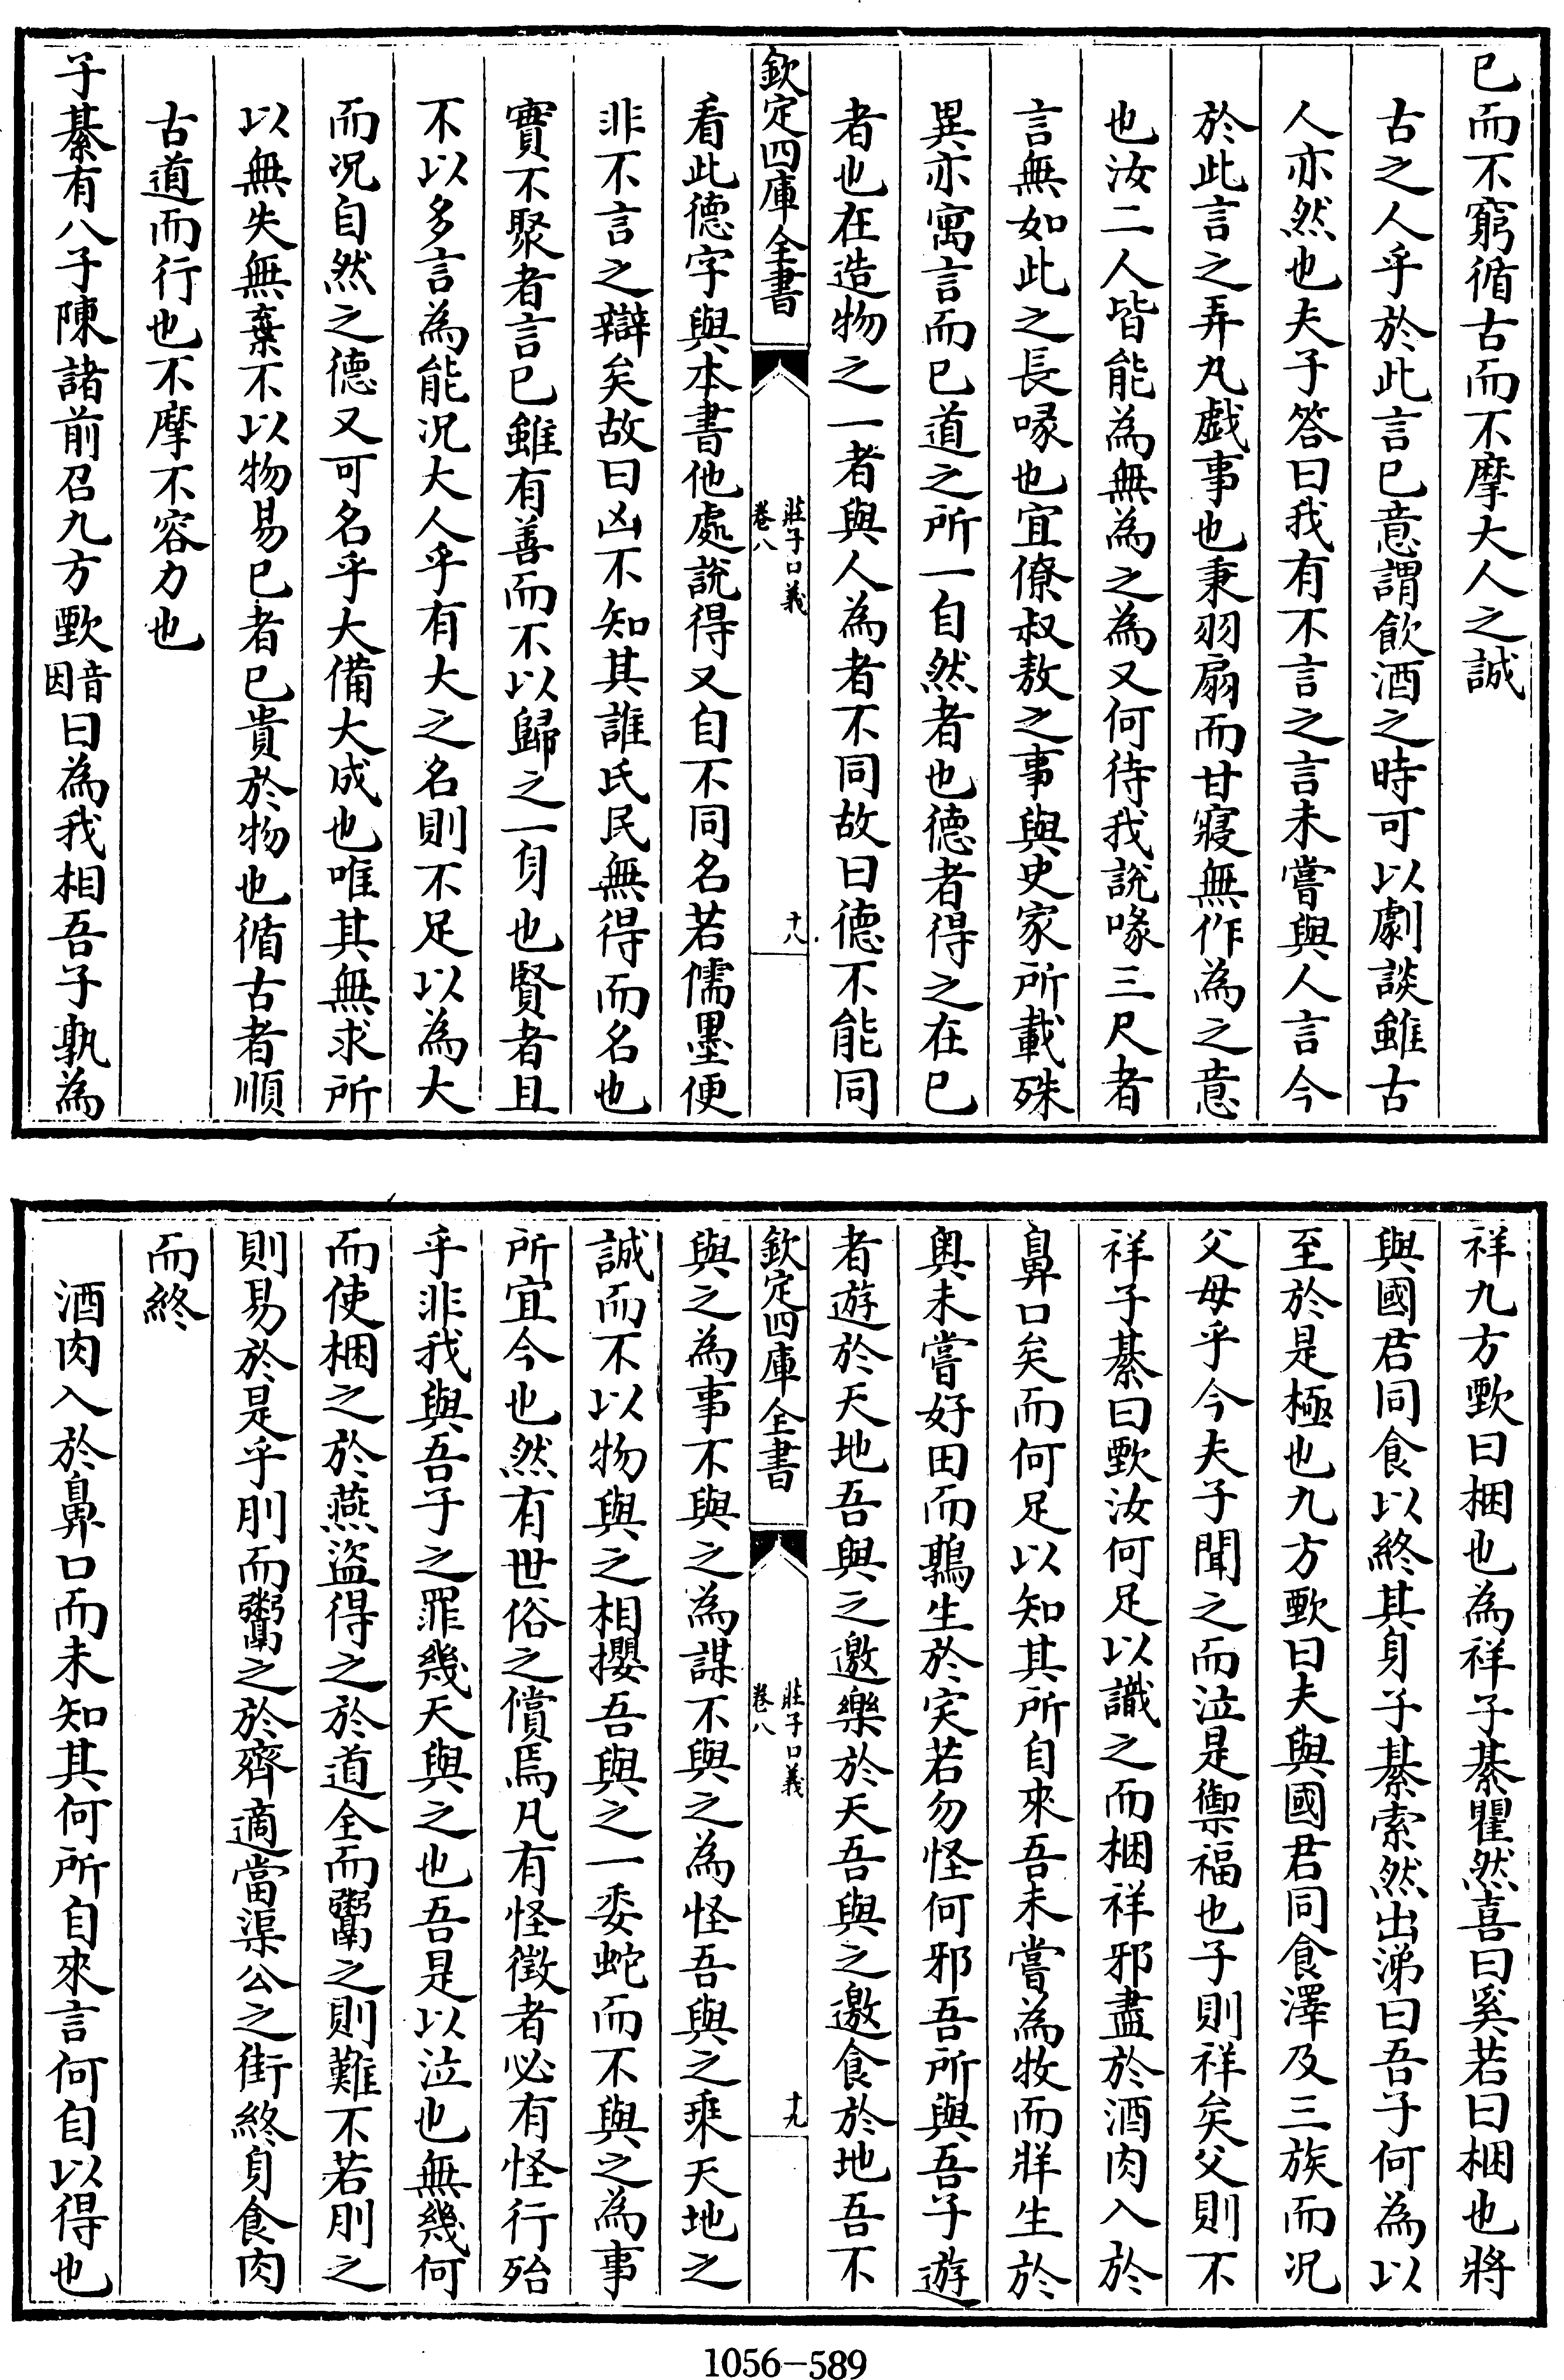 已而不窮循古而不摩大人之誠
古之人乎於此言已意謂飲酒之時可以劇談雖古
人亦然也夫子答曰我有不言之言未嘗與人言今
於此言之弄丸戯事也秉羽扇而甘寢無作為之意
也汝二人皆能為無為之為又何待我說喙三尺者
言無如此之長喙也宜僚叔敖之事與史家所載殊
異亦寓言而已道之所一自然者也德者得之在已
者也在造物之一者與人為者不同故曰德不能同
欽定四庫全書
莊子口義
卷八
十八
看此德字與本書他處說得又自不同名若儒墨便
非不言之辯矣故曰凶不知其誰氏民無得而名也
實不聚者言已雖有善而不以歸之一身也賢者且
不以多言為能況大人乎有大之名則不足以為大
而况自然之德又可名乎大備大成也唯其無求所
以無失無棄不以物易已者已貴於物也循古者順
古道而行也不摩不容力也
子綦有八子陳諸前召九方歅音因曰為我相吾子孰為
祥九方歅曰梱也為祥子綦瞿然喜曰奚若曰梱也將
與國君同食以終其身子綦索然出涕曰吾子何為以
至於是極也九方歅曰夫與國君同食澤及三族而况
父母乎今夫子聞之而泣是禦福也子則祥矣父則不
祥子綦曰歅汝何足以識之而梱祥邪盡於酒肉入於
鼻口矣而何足以知其所自來吾未嘗為牧而牂生於
奥未嘗好田而鶉生於宎若勿怪何邪吾所與吾子遊
者遊於天地吾與之邀樂於天吾與之邀食於地吾不
欽定四庫全書
莊子口義
卷八
十九
與之為事不與之為謀不與之為怪吾與之乘天地之
誠而不以物與之相攖吾與之一委蛇而不與之為事
所宜今也然有世俗之償焉凡有怪徵者必有怪行殆
乎非我與吾子之罪幾天與之也吾是以泣也無幾何
而使梱之於燕盜得之於道全而鬻之則難不若刖之
則易於是乎刖而鬻之於齊適當渠公之街終身食肉
而終
酒肉入於鼻口而未知其何所自來言何自以得也
1056-589